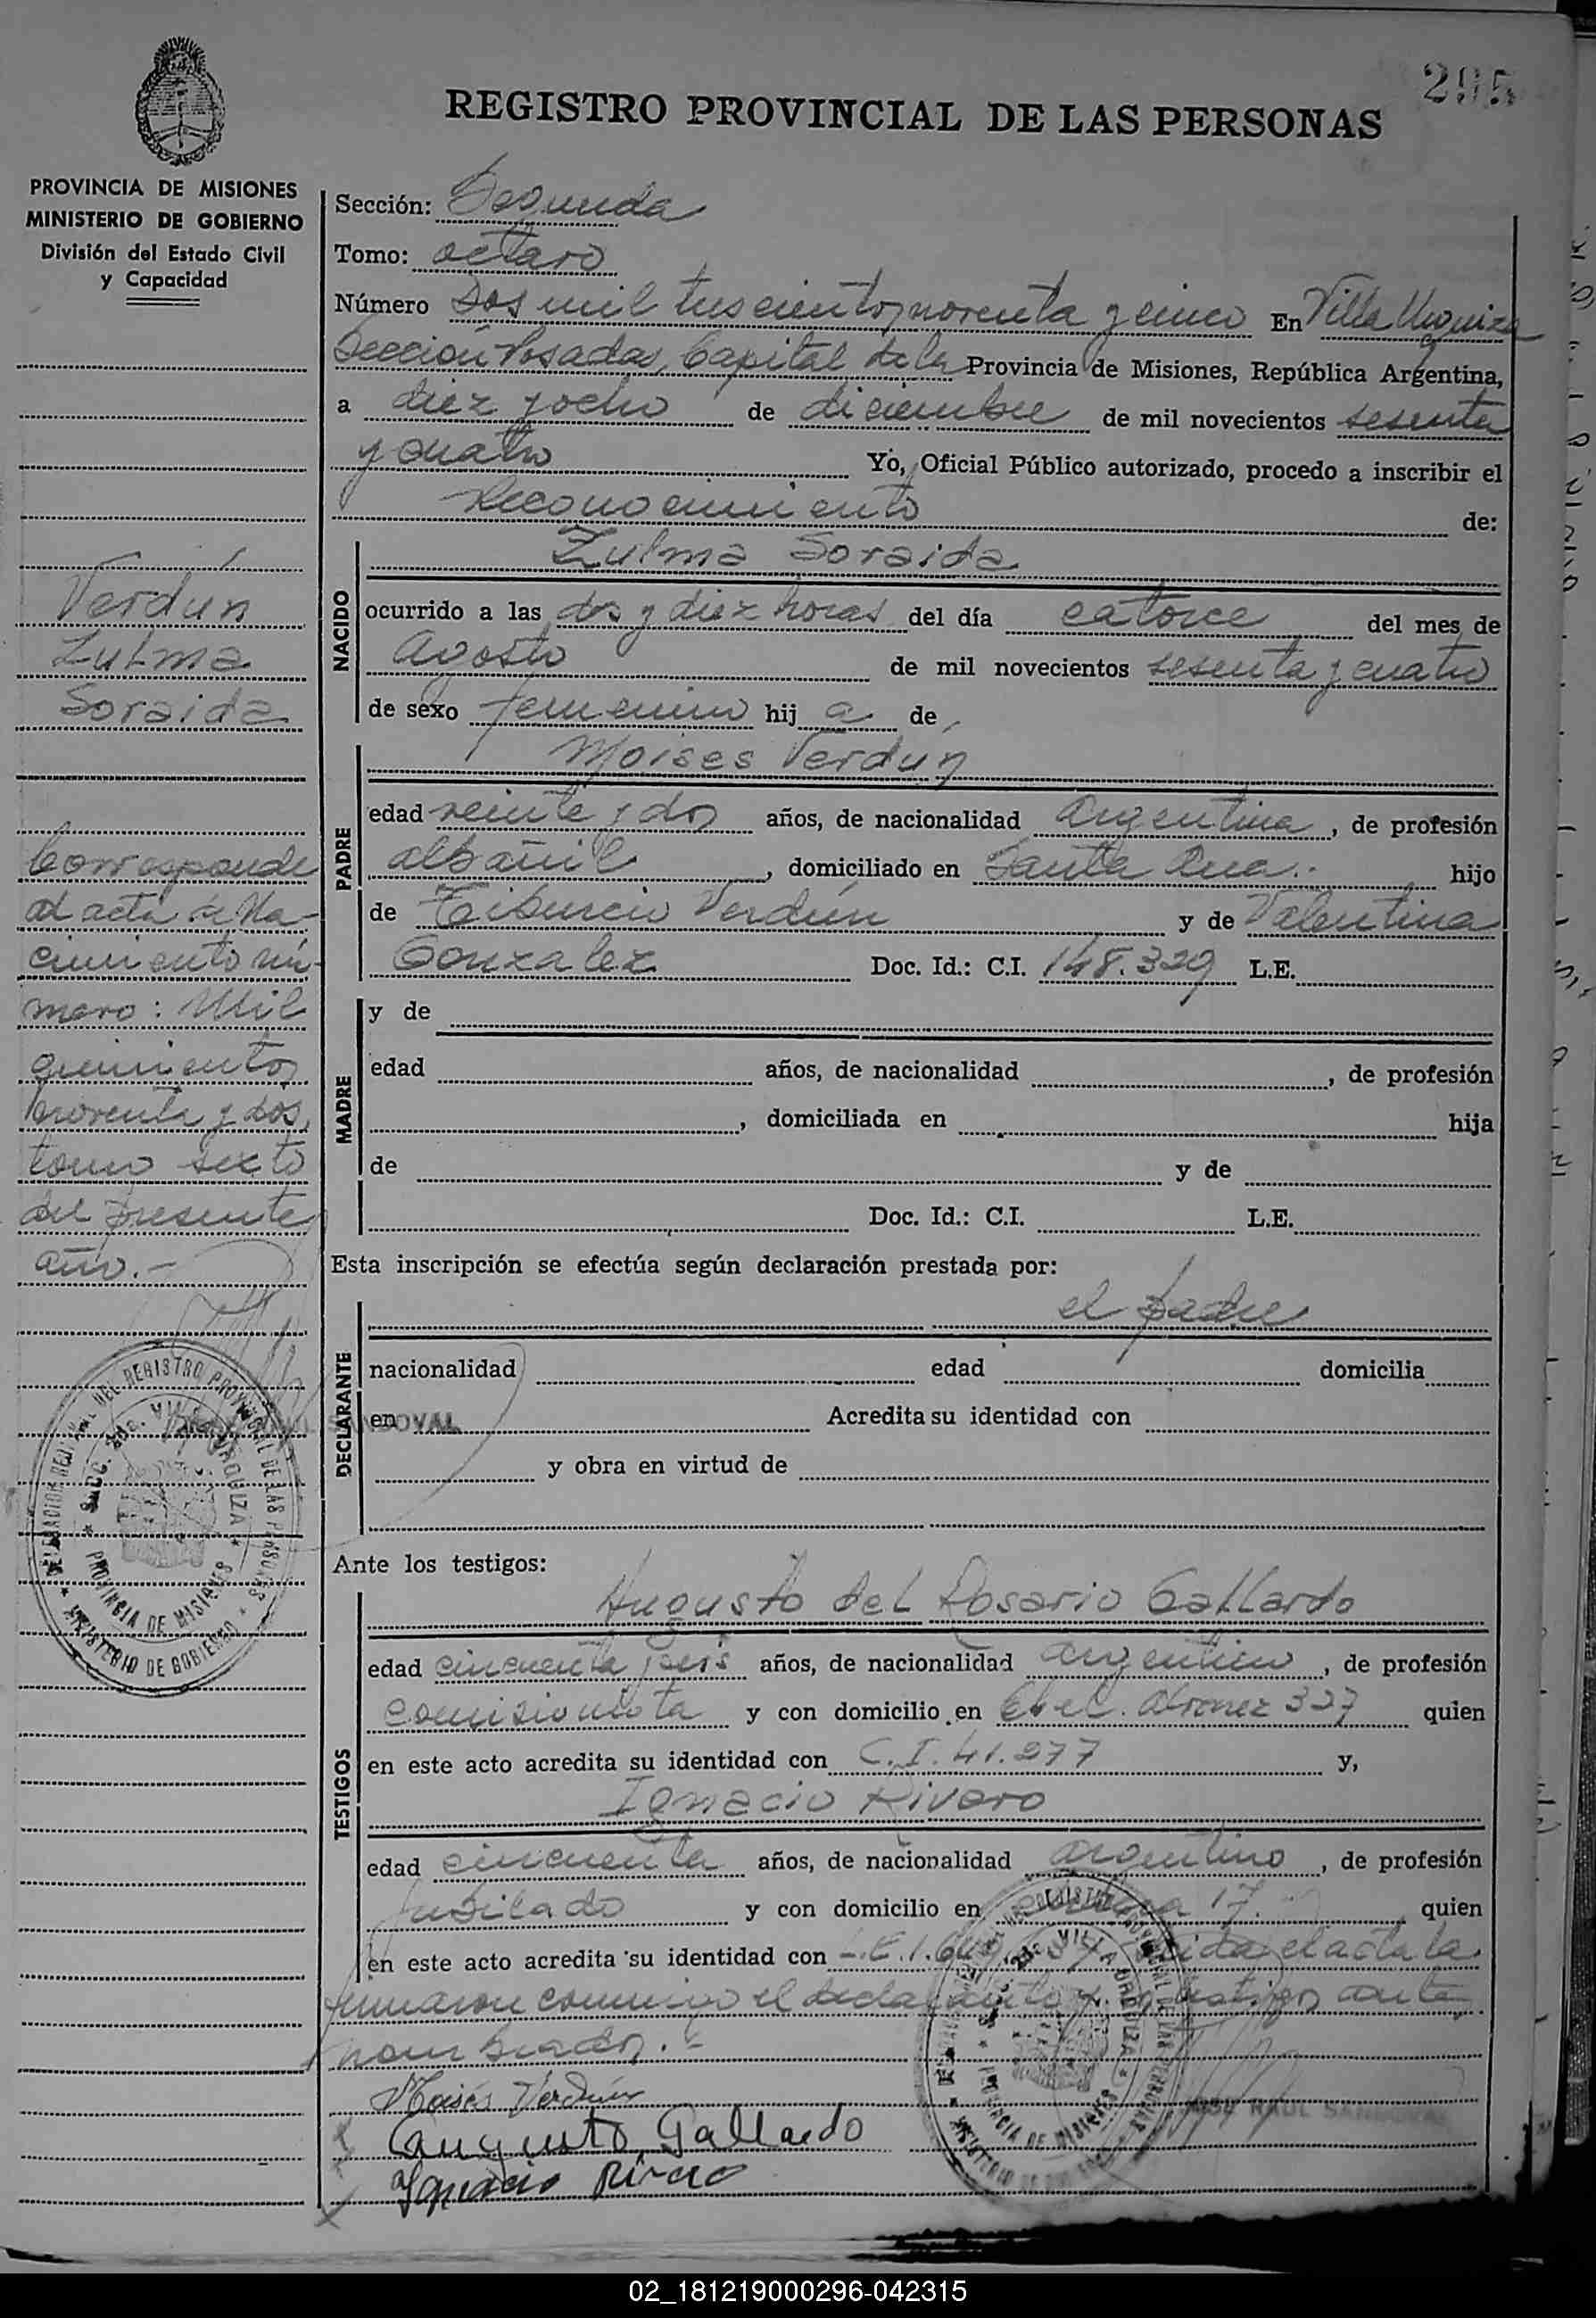 295
REGISTRO PROVINCIAL DE LAS PERSONAS
PROVINCIA DE MISIONES
MINISTERIO DE GOBIERNO
División del Estado Civil
y Capacidad
Verdún
Zulma
Soraida
Corresponde
al acta de Na-
cimiento nú-
mero: Mil
quinientos
noventa y dos
tomo sexto
del presente
año.-
Sección: Segunda
Tomo: octavo
Número Dos mil trescientos noventa y cinco En Villa Urquiza
Sección Posadas, Capital de la Provincia de Misiones, República Argentina,
a diez y ocho de diciembre de mil novecientos sesenta
y cuatro Yo, Oficial Público autorizado, procedo a inscribir el
Reconocimiento de:
NACIDO
Zulma Soraida
ocurrido a las dos y diez horas del día catorce del mes de
Agosto de mil novecientos sesenta y cuatro
de sexo femenino hij a de
PADRE
Moises Verdún
edad veinte y dos años, de nacionalidad Argentina, de profesión
albañil, domiciliado en Santa Ana.. hijo
de Tiburcio Verdún y de Valentina
Gonzalez Doc. Id.: C.I. 148.329 L.E.
MADRE
y de
edad años, de nacionalidad , de profesión
, domiciliada en hija
de y de
Doc. Id.: C.I. L.E.
Esta inscripción se efectúa según declaración prestada por:
el padre
DECLARANTE
nacionalidad edad domicilia
en Acredita su identidad con
y obra en virtud de
SANDOVAL
DEL REGISTRO PROVINCIAL DE LAS PERSONAS
Secc. 2da. VILLA URQUIZA
PROVINCIA DE MISIONES
MINISTERIO DE GOBIERNO
Ante los testigos:
TESTIGOS
Augusto del Rosario Gallardo
edad cincuenta y seis años, de nacionalidad argentino, de profesión
comisionista y con domicilio en 327 quien
en este acto acredita su identidad con C.I. 41.277 y,
Ignacio Rivero
edad cincuenta años, de nacionalidad argentino, de profesión
jubilado y con domicilio en 17. quien
en este acto acredita su identidad con L.E. 1. el acta la
firmaron conmigo el declarante y testigos ante
nombrados.-
Moisés Verdún
Augusto Gallardo
Ignacio Rivero
VILLA URQUIZA
PROVINCIA DE MISIONES
JOSE RAUL SANDOVAL
02_181219000296-042315